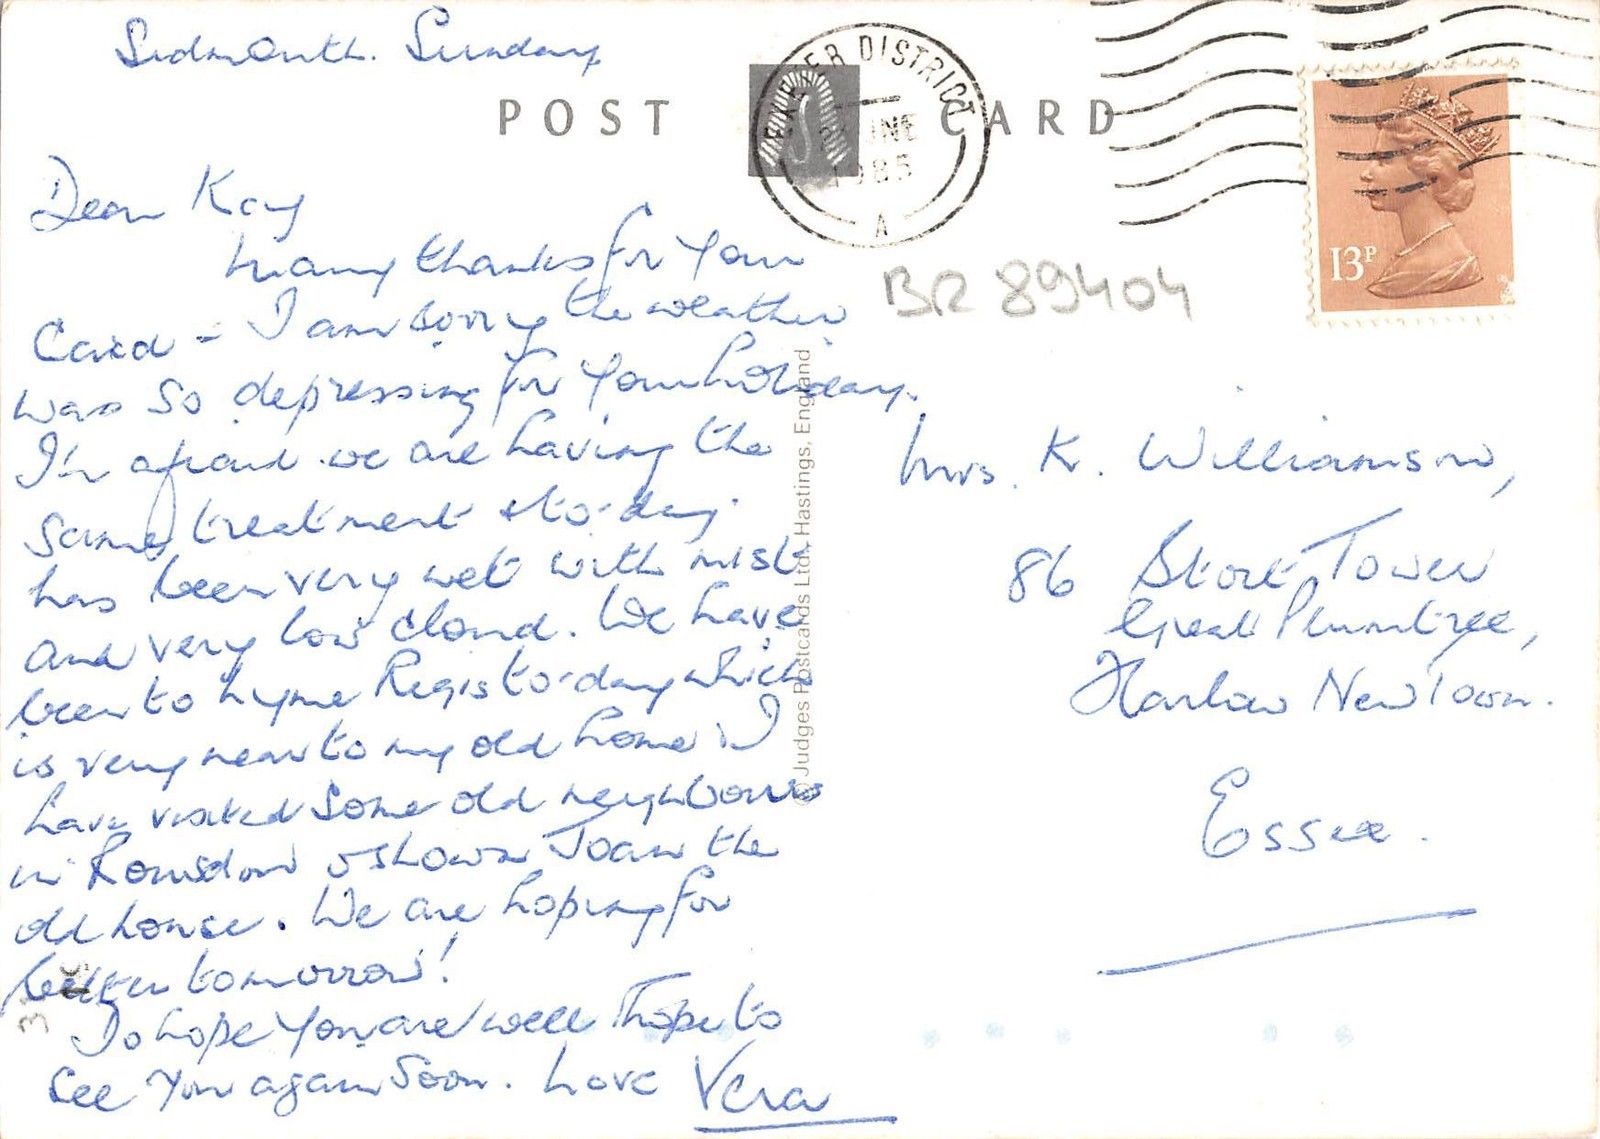 Sidmouth. Sunday
POST CARD
EXETER DISTRICT
JNE
1985
A
13P
Dear Kay
Many thanks for your
Card - I am sorry the weather
was so depressing for your holiday.
I'm afraid we are having the
same treatment & to-day
has been very wet with mist
and very low cloud. We have
been to Lyme Regis to-day which
is very near to my old home. I
have visited some old neighbours
in Rousdon & shown Joan the
old house. We are hoping for
better tomorrow!
Do hope you are well I hope to
see you again soon. Love Vera
BR 89404
© Judges Postcards Ltd, Hastings, England
Mrs. K. Williamson,
86 Stort Tower
Great Plumtree,
Harlow New Town.
Essex.